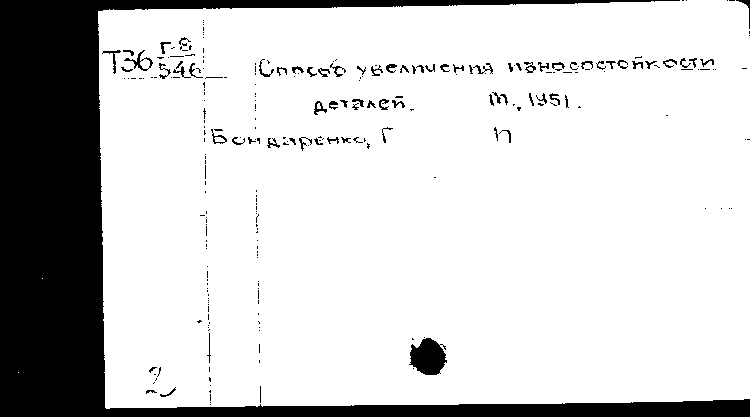 Т36 Г-8
546
Способ увеличения износостойкости
деталей. М., 1951.
Бондаренко, Г П
2